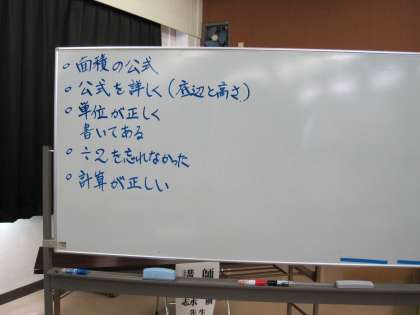 ○ 面積の公式
○ 公式を詳しく(底辺と高さ)
○ 単位が正しく
書いてある
○ ÷2を忘れなかった
○ 計算が正しい
講師
先生